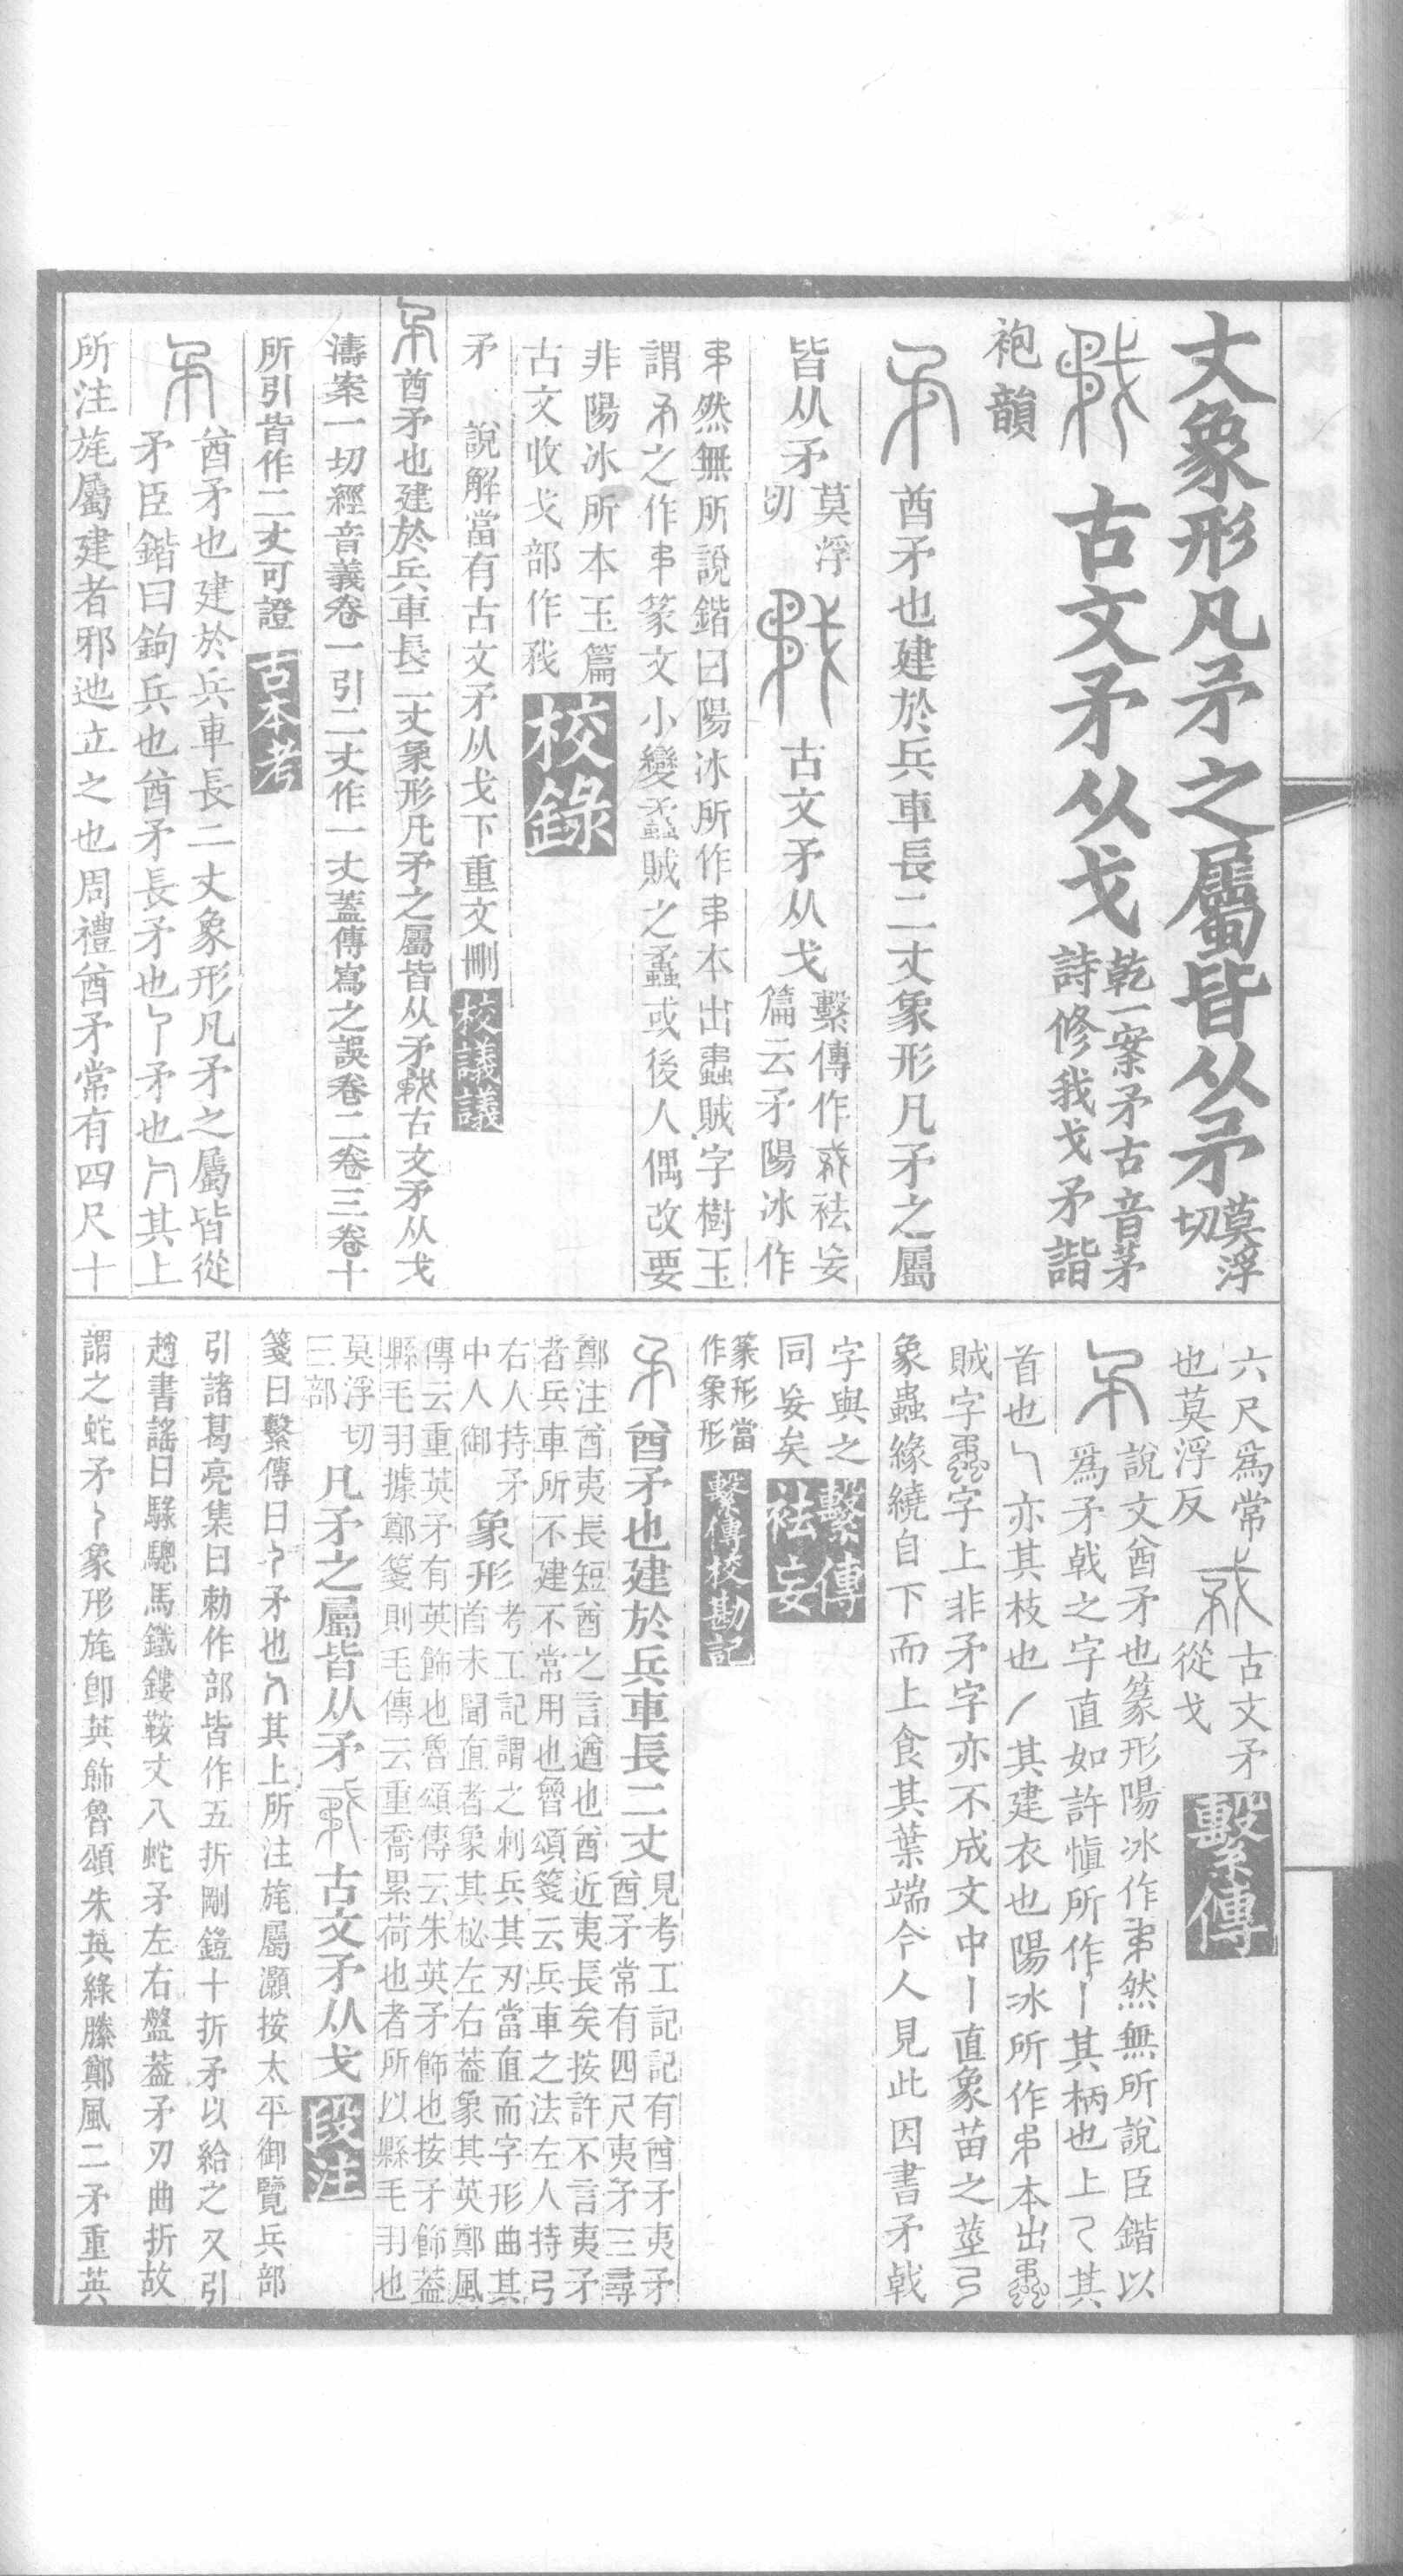 丈象形凡矛之屬皆从矛莫浮切
古文矛从戈乾一案矛古音茅
詩修我戈矛諧
袍韻
酋矛也建於兵車長二丈象形凡矛之屬
皆从矛莫浮切
古文矛从戈繫傳作𢦧袪妄
篇云矛陽冰作
然無所說鍇曰陽冰所作本出蟊賊字樹玉
謂之作篆文小變蟊賊之蟊或後人偶改要
非陽冰所本玉篇
古文收戈部作
校錄
矛 說解當有古文矛从戈下重文刪
校議議
酋矛也建於兵車長二丈象形凡矛之屬皆从矛古文矛从戈
濤案一切經音義卷一引二丈作一丈蓋傳寫之誤卷二卷三卷十
所引皆作二丈可證
古本考
酋矛也建於兵車長二丈象形凡矛之屬皆從
矛臣鍇曰鉤兵也酋矛長矛也矛也其上
所注旄屬建者邪迆立之也周禮酋矛常有四尺十
六尺爲常古文矛
也莫浮反從戈
繫傳
說文酋矛也篆形陽冰作然無所說臣鍇以
爲矛戟之字直如許愼所作丨其柄也上其
首也亦其枝也其建衣也陽冰所作本出
賊字字上非矛字亦不成文中丨直象苗之莖
象蟲緣繞自下而上食其葉端今人見此因書矛戟
字與之
同妄矣
繫傳袪妄
篆形當
作象形
繫傳校勘記
酋矛也建於兵車長二丈見考工記記有酋矛夷矛
酋矛常有四尺夷矛三尋
鄭注酋夷長短酋之言遒也酋近夷長矣按許不言夷矛
者兵車所不建不常用也魯頌箋云兵車之法左人持弓
右人持矛
中人御
象形考工記謂之刺兵其刃當直而字形曲其
首未聞直者象其柲左右葢象其英鄭風
傳云重英矛有英飾也魯頌傳云朱英矛飾也按矛飾葢
縣毛羽據鄭箋則毛傳云重喬累荷也者所以縣毛羽也
莫浮切
三部
凡矛之屬皆从矛 古文矛从戈
段注
箋曰繫傳曰矛也其上所注旄屬灝按太平御覽兵部
引諸葛亮集曰勅作部皆作五折剛鎧十折矛以給之又引
趙書謠曰騄驄馬鐵鏤鞍丈八蛇矛左右盤葢矛刃曲折故
謂之蛇矛象形旄卽英飾魯頌朱英綠縢鄭風二矛重英